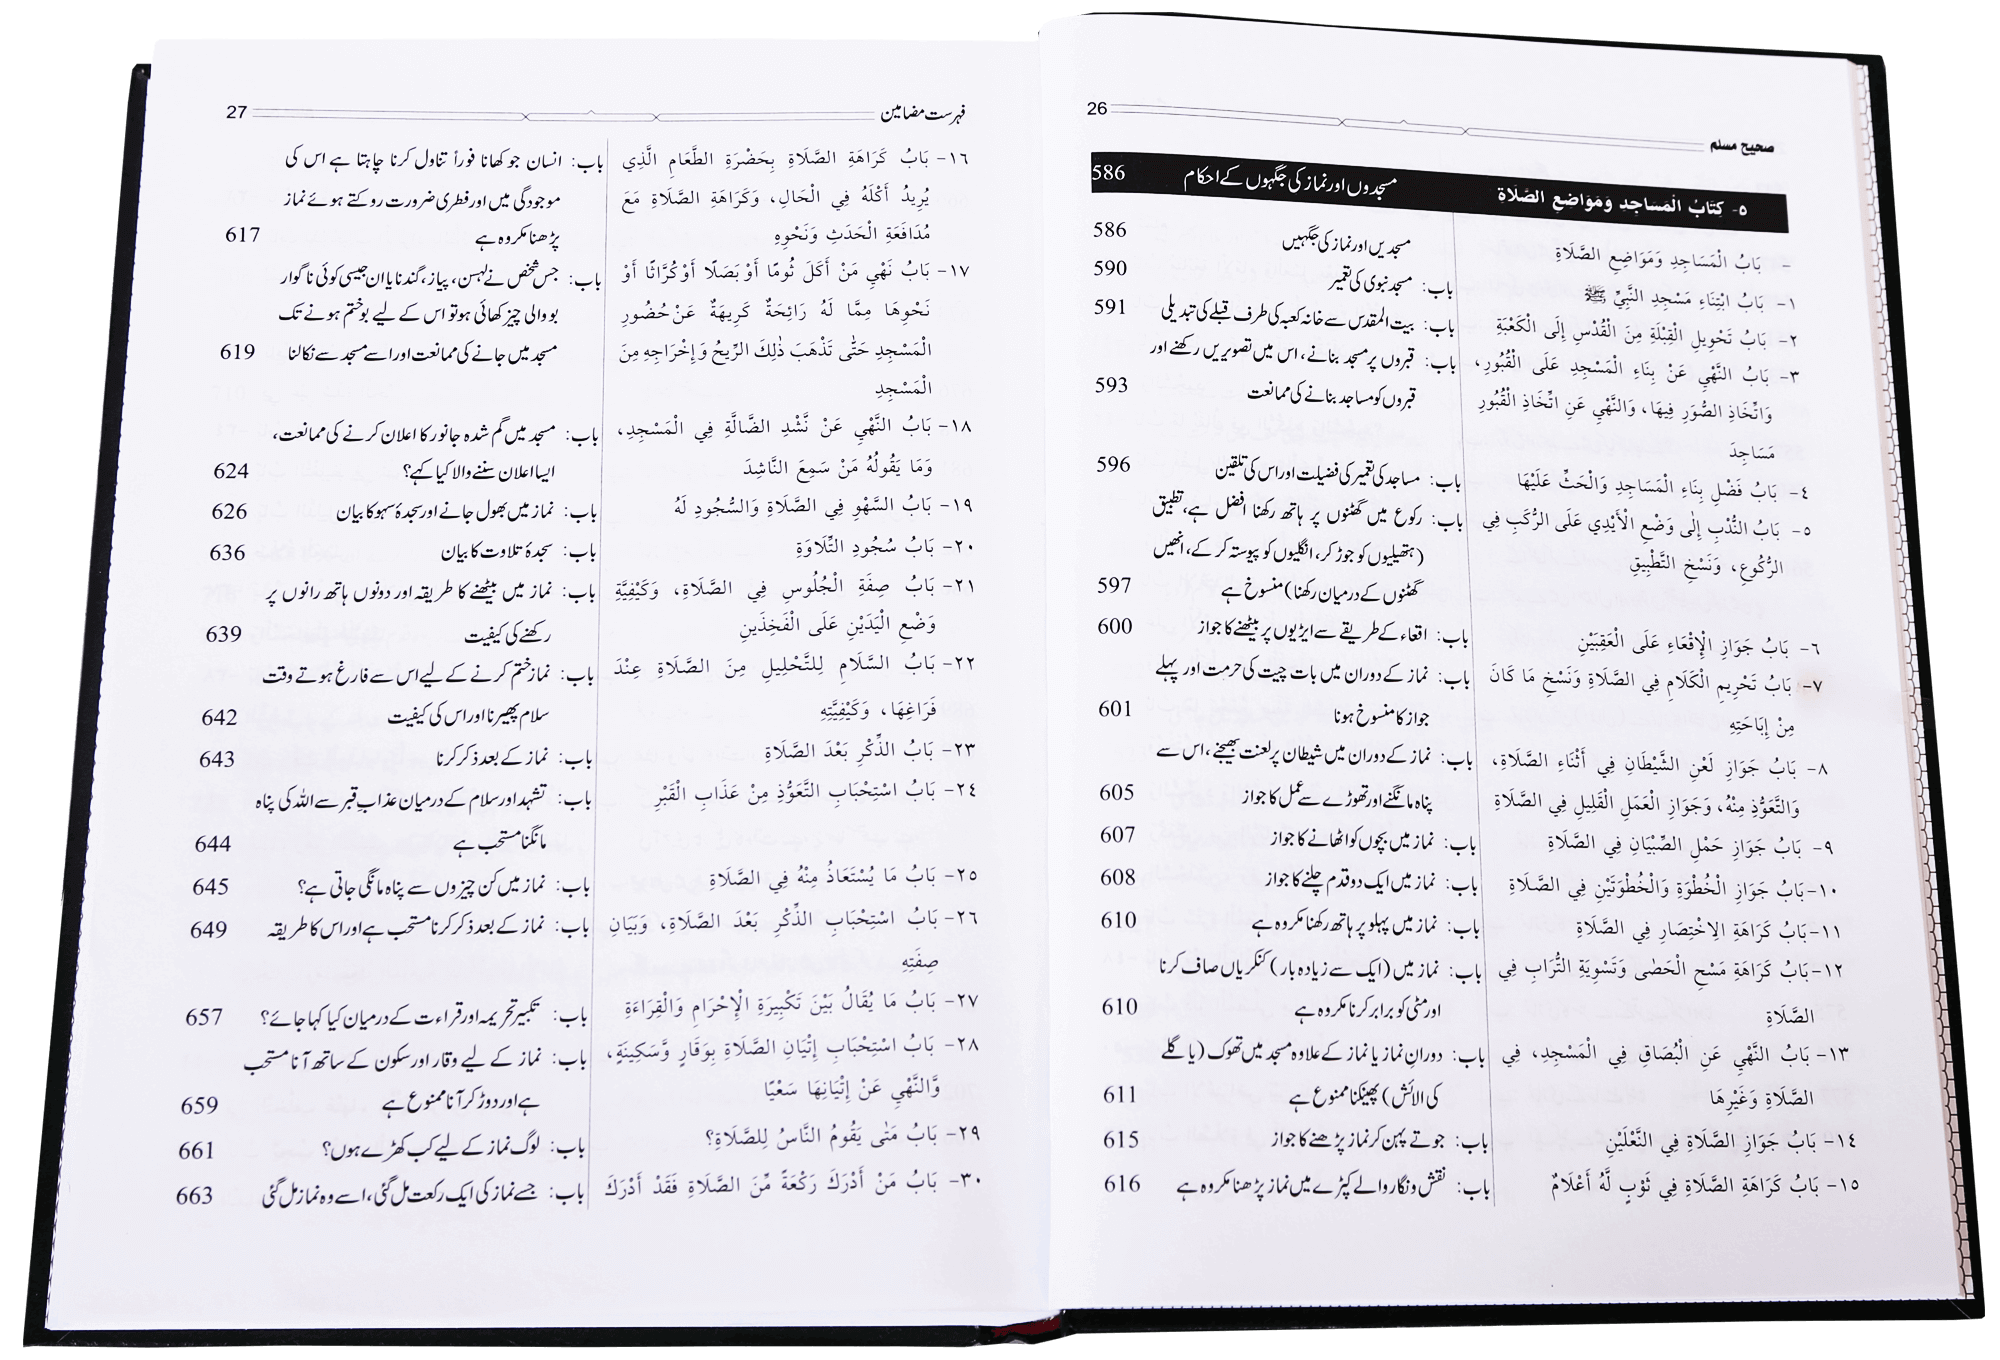 صحیح مسلم 26
٥- كِتَابُ الْمَسَاجِدِ وَمَوَاضِعِ الصَّلَاةِ مسجدوں اور نماز کی جگہوں کے احکام 586
- بَابُ الْمَسَاجِدِ وَمَوَاضِعِ الصَّلَاةِ مسجدیں اور نماز کی جگہیں 586
١- بَابُ ابْتِنَاءِ مَسْجِدِ النَّبِيِّ ﷺ باب: مسجد نبوی کی تعمیر 590
٢- بَابُ تَحْوِيلِ الْقِبْلَةِ مِنَ الْقُدْسِ إِلَى الْكَعْبَةِ باب: بیت المقدس سے خانہ کعبہ کی طرف قبلے کی تبدیلی 591
٣- بَابُ النَّهْيِ عَنْ بِنَاءِ الْمَسْجِدِ عَلَى الْقُبُورِ، باب: قبروں پر مسجد بنانے، اس میں تصویریں رکھنے اور
وَاتِّخَاذِ الصُّوَرِ فِيهَا، وَالنَّهْيِ عَنِ اتِّخَاذِ الْقُبُورِ قبروں کو مساجد بنانے کی ممانعت 593
مَسَاجِدَ
٤- بَابُ فَضْلِ بِنَاءِ الْمَسَاجِدِ وَالْحَثِّ عَلَيْهَا باب: مساجد کی تعمیر کی فضیلت اور اس کی تلقین 596
٥- بَابُ النَّدْبِ إِلٰى وَضْعِ الْأَيْدِي عَلَى الرُّكَبِ فِي باب: رکوع میں گھٹنوں پر ہاتھ رکھنا افضل ہے، تطبیق
الرُّكُوعِ، وَنَسْخِ التَّطْبِيقِ (ہتھیلیوں کو جوڑ کر، انگلیوں کو پیوستہ کر کے، انھیں
گھٹنوں کے درمیان رکھنا) منسوخ ہے 597
٦- بَابُ جَوَازِ الْإِقْعَاءِ عَلَى الْعَقِبَيْنِ باب: اقعاء کے طریقے سے ایڑیوں پر بیٹھنے کا جواز 600
٧- بَابُ تَحْرِيمِ الْكَلَامِ فِي الصَّلَاةِ وَنَسْخِ مَا كَانَ باب: نماز کے دوران میں بات چیت کی حرمت اور پہلے
مِنْ إِبَاحَتِهِ جواز کا منسوخ ہونا 601
٨- بَابُ جَوَازِ لَعْنِ الشَّيْطَانِ فِي أَثْنَاءِ الصَّلَاةِ، باب: نماز کے دوران میں شیطان پر لعنت بھیجنے، اس سے
وَالتَّعَوُّذِ مِنْهُ، وَجَوَازِ الْعَمَلِ الْقَلِيلِ فِي الصَّلَاةِ پناہ مانگنے اور تھوڑے سے عمل کا جواز 605
٩- بَابُ جَوَازِ حَمْلِ الصِّبْيَانِ فِي الصَّلَاةِ باب: نماز میں بچوں کو اٹھانے کا جواز 607
١٠- بَابُ جَوَازِ الْخُطْوَةِ وَالْخُطْوَتَيْنِ فِي الصَّلَاةِ باب: نماز میں ایک دو قدم چلنے کا جواز 608
١١- بَابُ كَرَاهَةِ الِاخْتِصَارِ فِي الصَّلَاةِ باب: نماز میں پہلو پر ہاتھ رکھنا مکروہ ہے 610
١٢- بَابُ كَرَاهَةِ مَسْحِ الْحَصٰى وَتَسْوِيَةِ التُّرَابِ فِي باب: نماز میں (ایک سے زیادہ بار) کنکریاں صاف کرنا
الصَّلَاةِ اور مٹی کو برابر کرنا مکروہ ہے 610
١٣- بَابُ النَّهْيِ عَنِ الْبُصَاقِ فِي الْمَسْجِدِ، فِي باب: دورانِ نماز یا نماز کے علاوہ مسجد میں تھوک (یا گلے
الصَّلَاةِ وَغَيْرِهَا کی الائش) پھینکنا ممنوع ہے 611
١٤- بَابُ جَوَازِ الصَّلَاةِ فِي النَّعْلَيْنِ باب: جوتے پہن کر نماز پڑھنے کا جواز 615
١٥- بَابُ كَرَاهَةِ الصَّلَاةِ فِي ثَوْبٍ لَّهُ أَعْلَامٌ باب: نقش و نگار والے کپڑے میں نماز پڑھنا مکروہ ہے 616
فہرست مضامین 27
١٦- بَابُ كَرَاهَةِ الصَّلَاةِ بِحَضْرَةِ الطَّعَامِ الَّذِي باب: انسان جو کھانا فوراً تناول کرنا چاہتا ہے اس کی
يُرِيدُ أَكْلَهُ فِي الْحَالِ، وَكَرَاهَةِ الصَّلَاةِ مَعَ موجودگی میں اور فطری ضرورت روکتے ہوئے نماز
مُدَافَعَةِ الْحَدَثِ وَنَحْوِهِ پڑھنا مکروہ ہے 617
١٧- بَابُ نَهْيِ مَنْ أَكَلَ ثُومًا أَوْ بَصَلًا أَوْ كُرَّاثًا أَوْ باب: جس شخص نے لہسن، پیاز، گندنا یا ان جیسی کوئی ناگوار
نَحْوِهَا مِمَّا لَهُ رَائِحَةٌ كَرِيهَةٌ عَنْ حُضُورِ بو والی چیز کھائی ہو تو اس کے لیے بو ختم ہونے تک
الْمَسْجِدِ حَتّٰى تَذْهَبَ ذٰلِكَ الرِّيحُ وَإِخْرَاجِهِ مِنَ مسجد میں جانے کی ممانعت اور اسے مسجد سے نکالنا 619
الْمَسْجِدِ
١٨- بَابُ النَّهْيِ عَنْ نَّشْدِ الضَّالَّةِ فِي الْمَسْجِدِ، باب: مسجد میں گم شدہ جانور کا اعلان کرنے کی ممانعت،
وَمَا يَقُولُهُ مَنْ سَمِعَ النَّاشِدَ ایسا اعلان سننے والا کیا کہے؟ 624
١٩- بَابُ السَّهْوِ فِي الصَّلَاةِ وَالسُّجُودِ لَهُ باب: نماز میں بھول جانے اور سجدۂ سہو کا بیان 626
٢٠- بَابُ سُجُودِ التِّلَاوَةِ باب: سجدۂ تلاوت کا بیان 636
٢١- بَابُ صِفَةِ الْجُلُوسِ فِي الصَّلَاةِ، وَكَيْفِيَّةِ باب: نماز میں بیٹھنے کا طریقہ اور دونوں ہاتھ رانوں پر
وَضْعِ الْيَدَيْنِ عَلَى الْفَخِذَيْنِ رکھنے کی کیفیت 639
٢٢- بَابُ السَّلَامِ لِلتَّحْلِيلِ مِنَ الصَّلَاةِ عِنْدَ باب: نماز ختم کرنے کے لیے اس سے فارغ ہوتے وقت
فَرَاغِهَا، وَكَيْفِيَّتِهِ سلام پھیرنا اور اس کی کیفیت 642
٢٣- بَابُ الذِّكْرِ بَعْدَ الصَّلَاةِ باب: نماز کے بعد ذکر کرنا 643
٢٤- بَابُ اسْتِحْبَابِ التَّعَوُّذِ مِنْ عَذَابِ الْقَبْرِ باب: تشہد اور سلام کے درمیان عذابِ قبر سے اللہ کی پناہ
مانگنا مستحب ہے 644
٢٥- بَابُ مَا يُسْتَعَاذُ مِنْهُ فِي الصَّلَاةِ باب: نماز میں کن چیزوں سے پناہ مانگی جاتی ہے؟ 645
٢٦- بَابُ اسْتِحْبَابِ الذِّكْرِ بَعْدَ الصَّلَاةِ، وَبَيَانِ باب: نماز کے بعد ذکر کرنا مستحب ہے اور اس کا طریقہ 649
صِفَتِهِ
٢٧- بَابُ مَا يُقَالُ بَيْنَ تَكْبِيرَةِ الْإِحْرَامِ وَالْقِرَاءَةِ باب: تکبیر تحریمہ اور قراءت کے درمیان کیا کہا جائے؟ 657
٢٨- بَابُ اسْتِحْبَابِ إِتْيَانِ الصَّلَاةِ بِوَقَارٍ وَّسَكِينَةٍ، باب: نماز کے لیے وقار اور سکون کے ساتھ آنا مستحب
وَّالنَّهْيِ عَنْ إِتْيَانِهَا سَعْيًا ہے اور دوڑ کر آنا ممنوع ہے 659
٢٩- بَابُ مَتٰى يَقُومُ النَّاسُ لِلصَّلَاةِ؟ باب: لوگ نماز کے لیے کب کھڑے ہوں؟ 661
٣٠- بَابُ مَنْ أَدْرَكَ رَكْعَةً مِّنَ الصَّلَاةِ فَقَدْ أَدْرَكَ باب: جسے نماز کی ایک رکعت مل گئی، اسے وہ نماز مل گئی 663